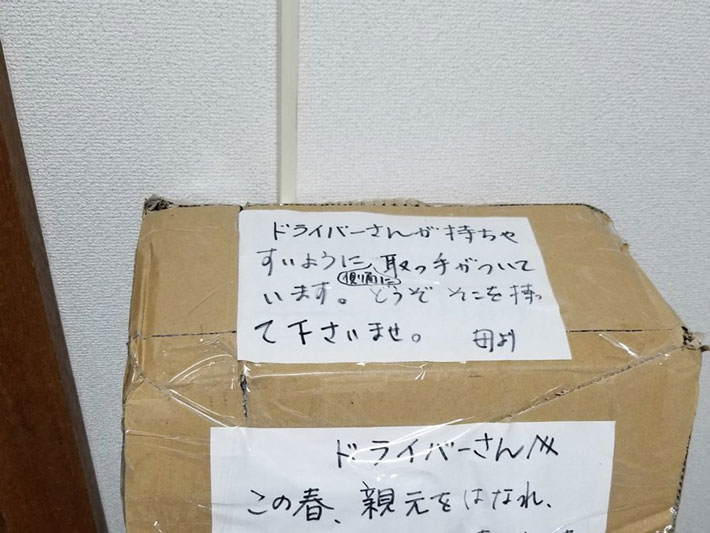 ドライバーさんが持ちや
すいように、取っ手がついて
側面に
います。どうぞ そこを持っ
て下さいませ。 母より
ドライバーさんへ
この春、親元をはなれ、